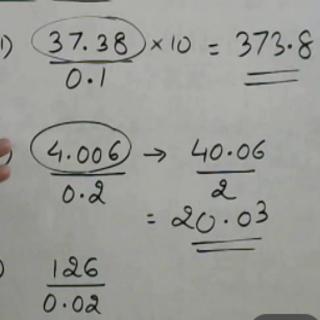 1) 37.38/0.1 × 10 = 373.8
) 4.006/0.2 → 40.06/2
= 20.03
) 126/0.02